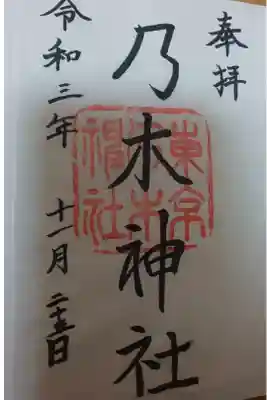 奉拝
乃木神社
東京乃木神社
令和三年 十一月 二十五日